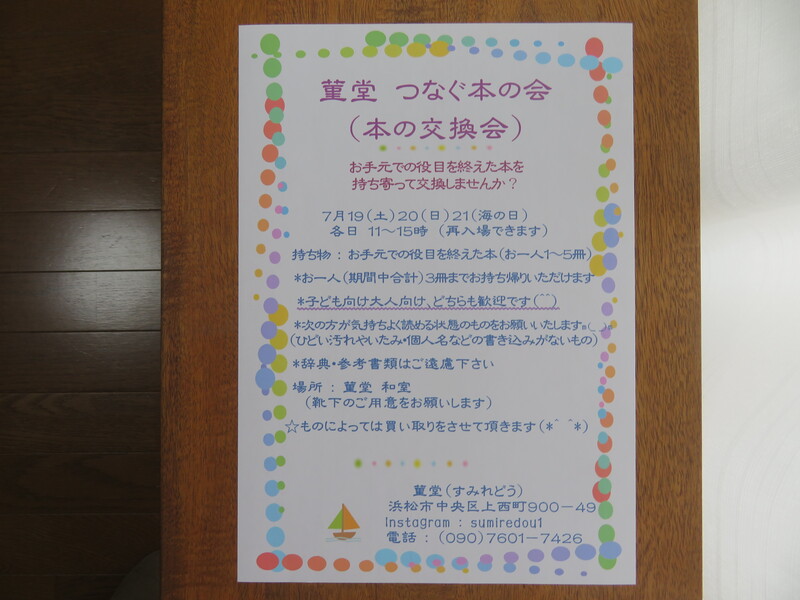 菫堂 つなぐ本の会
(本の交換会)
お手元での役目を終えた本を
持ち寄って交換しませんか?
7月19(土)20(日)21(海の日)
各日 11〜15時 (再入場できます)
持ち物 : お手元での役目を終えた本(お一人1〜5冊)
*お一人(期間中合計)3冊までお持ち帰りいただけます
*子ども向け大人向け、どちらも歓迎です(^^)
*次の方が気持ちよく読める状態のものをお願いいたします。(_ _)。
(ひどい汚れやいたみ・個人名などの書き込みがないもの)
*辞典・参考書類はご遠慮下さい
場所 : 菫堂 和室
(靴下のご用意をお願いします)
☆ものによっては買い取りをさせて頂きます(*^ ^*)
菫堂(すみれどう)
浜松市中央区上西町900-49
Instagram : sumiredou1
電話 : (090)7601-7426